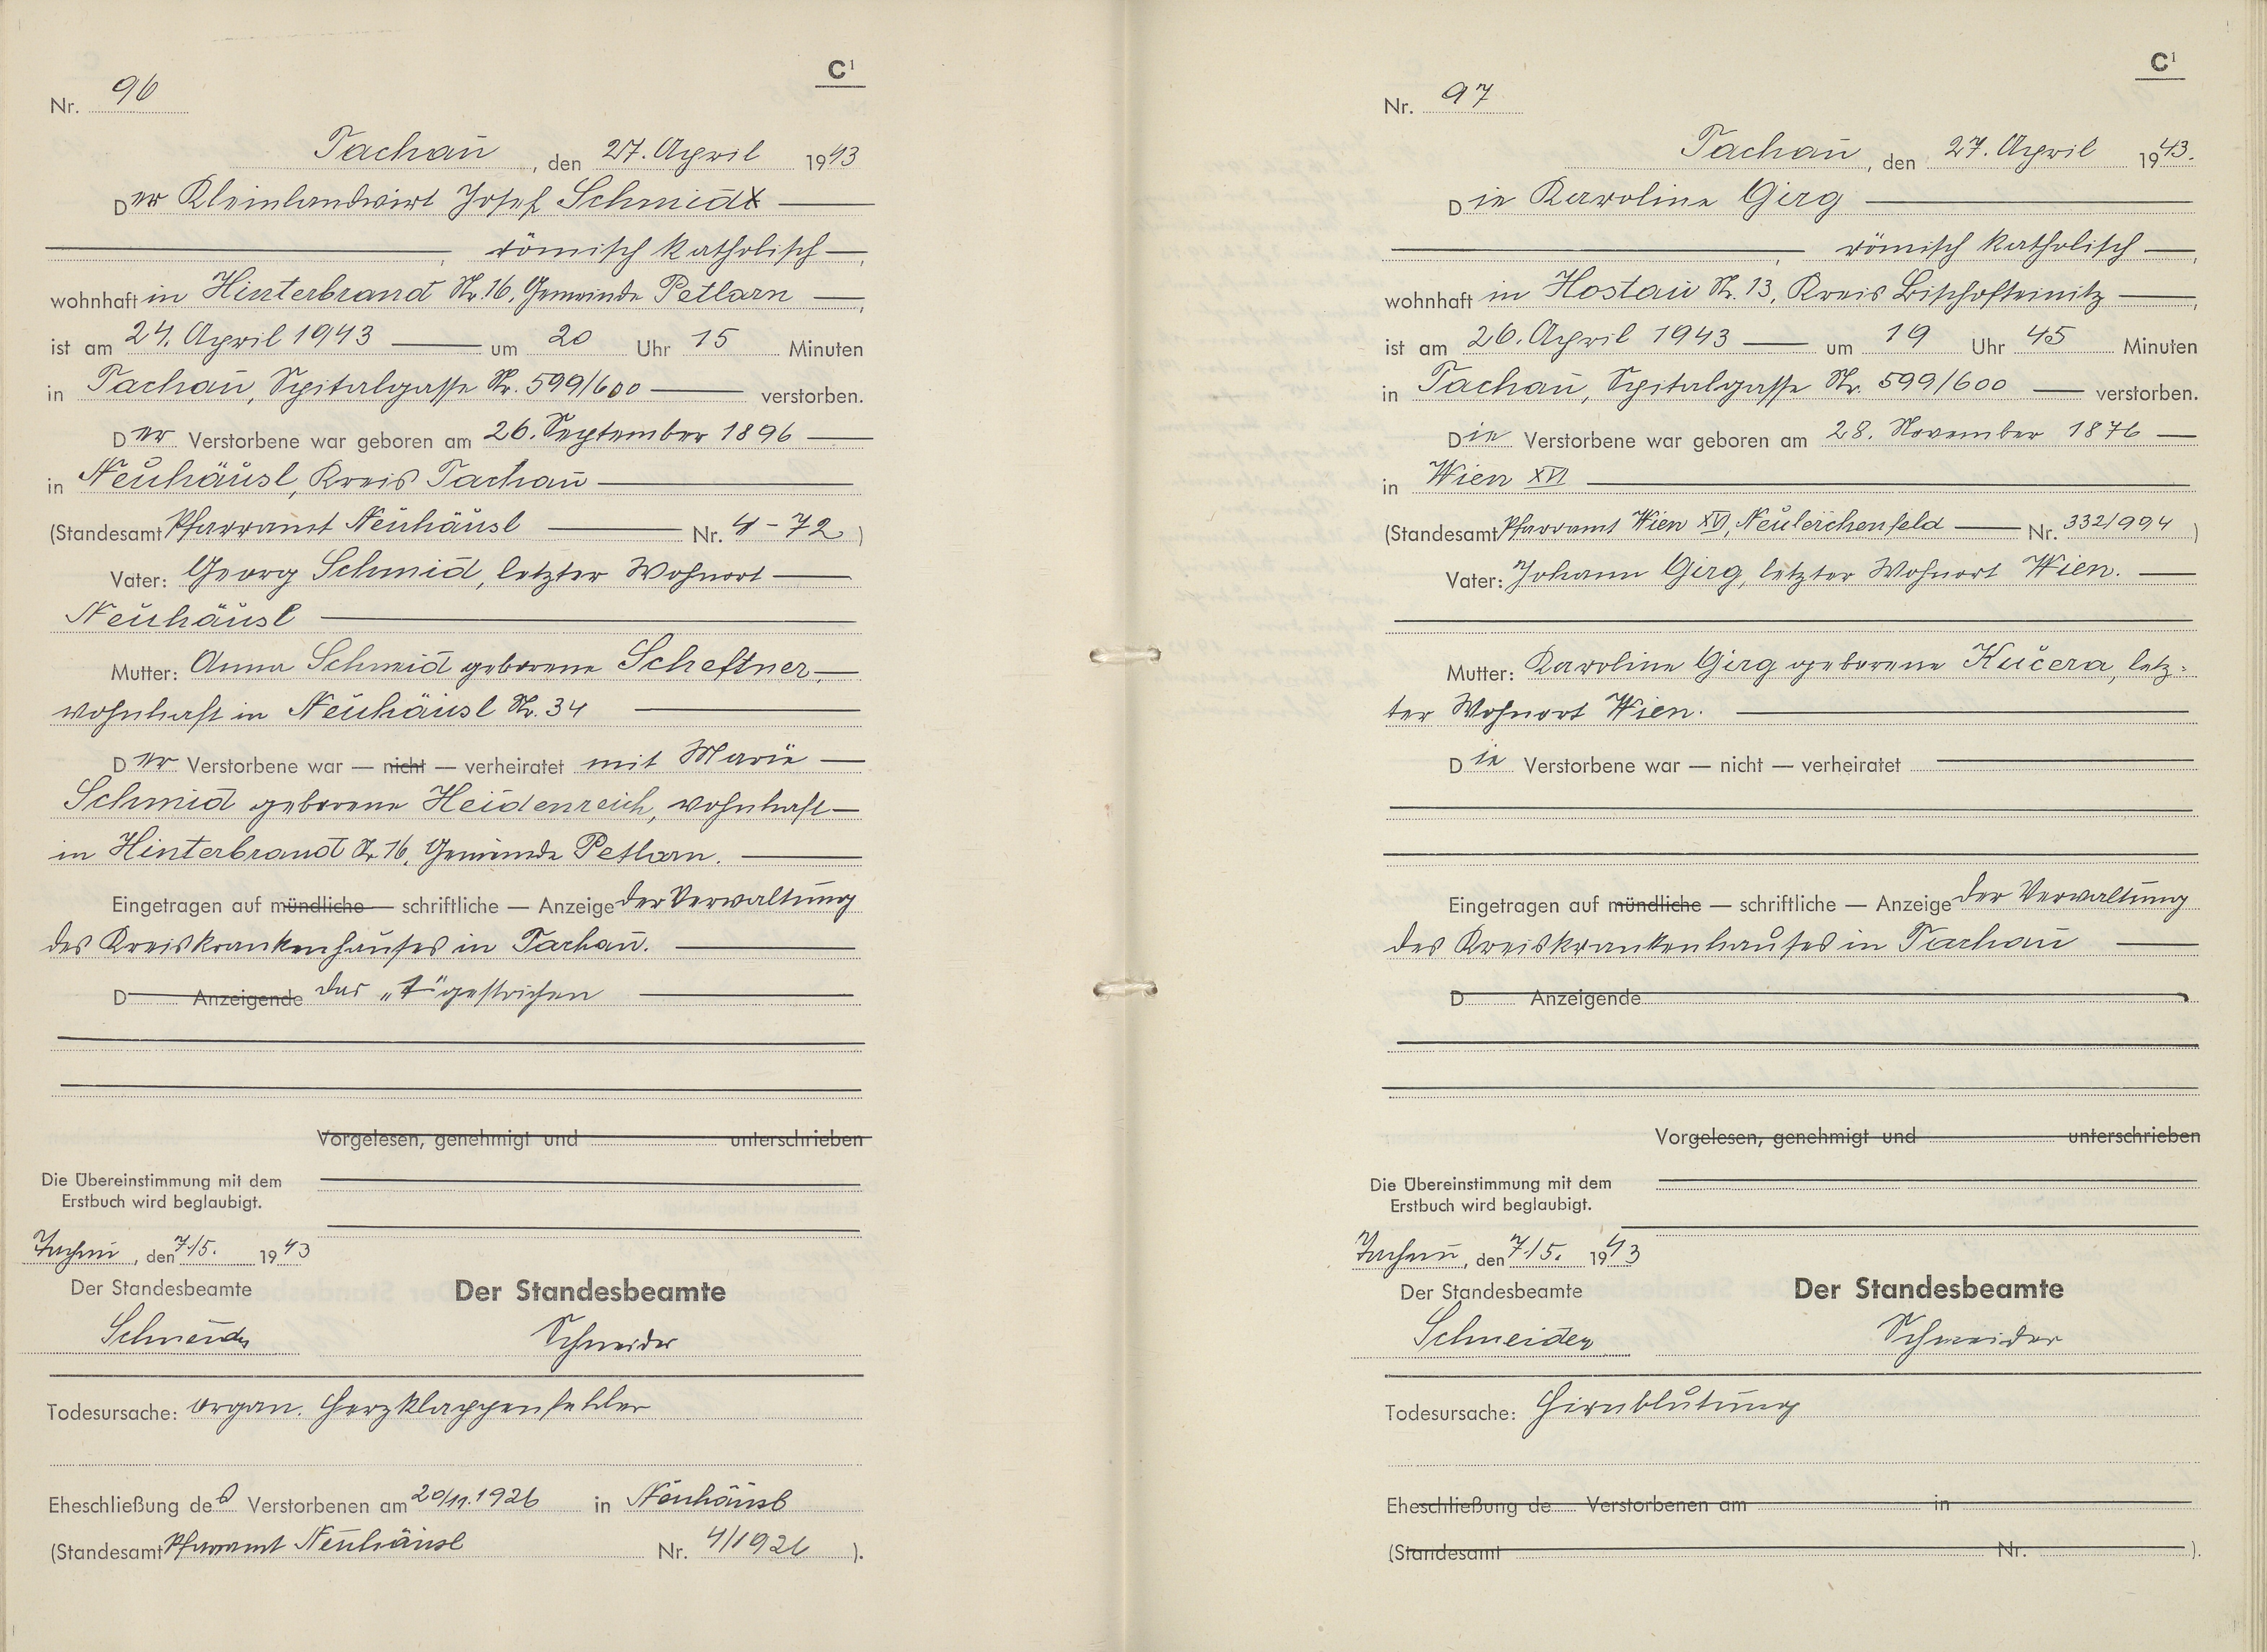 C¹
Nr. 96
Tachau, den 27. April 1943
Der Kleinlandwirt Josef Schmidt
römisch katholisch,
wohnhaft in Hinterbrand Nr. 16, Gemeinde Petlarn,
ist am 24. April 1943 um 20 Uhr 15 Minuten
in Tachau, Spitalgasse Nr. 599/600 verstorben.
Der Verstorbene war geboren am 26. September 1896
in Neuhäusl, Kreis Tachau
(Standesamt Pfarramt Neuhäusl Nr. 4-72)
Vater: Georg Schmid, letzter Wohnort
Neuhäusl
Mutter: Anna Schmid geborene Scheftner,
wohnhaft in Neuhäusl Nr. 34
Der Verstorbene war — nicht — verheiratet mit Marie
Schmid geborene Heidenreich, wohnhaft
in Hinterbrand Nr. 16, Gemeinde Petlarn.
Eingetragen auf mündliche — schriftliche — Anzeige der Verwaltung
des Kreiskrankenhauses in Tachau.
D Anzeigende das „t" gestrichen
Vorgelesen, genehmigt und unterschrieben
Die Übereinstimmung mit dem
Erstbuch wird beglaubigt.
Tachau, den 7./5. 1943
Der Standesbeamte Der Standesbeamte
Schneider Schneider
Todesursache: organ. Herzklappenfehler
Eheschließung des Verstorbenen am 20/11.1926 in Neuhäusl
(Standesamt Pfarramt Neuhäusl Nr. 4/1926).
C¹
Nr. 97
Tachau, den 27. April 1943.
Die Karoline Girg
römisch katholisch,
wohnhaft in Hostau Nr. 13, Kreis Bischofteinitz,
ist am 26. April 1943 um 19 Uhr 45 Minuten
in Tachau, Spitalgasse Nr. 599/600 verstorben.
Die Verstorbene war geboren am 28. November 1876
in Wien XVI
(Standesamt Pfarramt Wien XVI, Neulerchenfeld Nr. 332/994)
Vater: Johann Girg, letzter Wohnort Wien.
Mutter: Karoline Girg geborene Kučera, letz-
ter Wohnort Wien.
Die Verstorbene war — nicht — verheiratet
Eingetragen auf mündliche — schriftliche — Anzeige der Verwaltung
des Kreiskrankenhauses in Tachau
D Anzeigende
Vorgelesen, genehmigt und unterschrieben
Die Übereinstimmung mit dem
Erstbuch wird beglaubigt.
Tachau, den 7./5. 1943
Der Standesbeamte Der Standesbeamte
Schneider Schneider
Todesursache: Hirnblutung
Eheschließung de Verstorbenen am in
(Standesamt Nr. ).